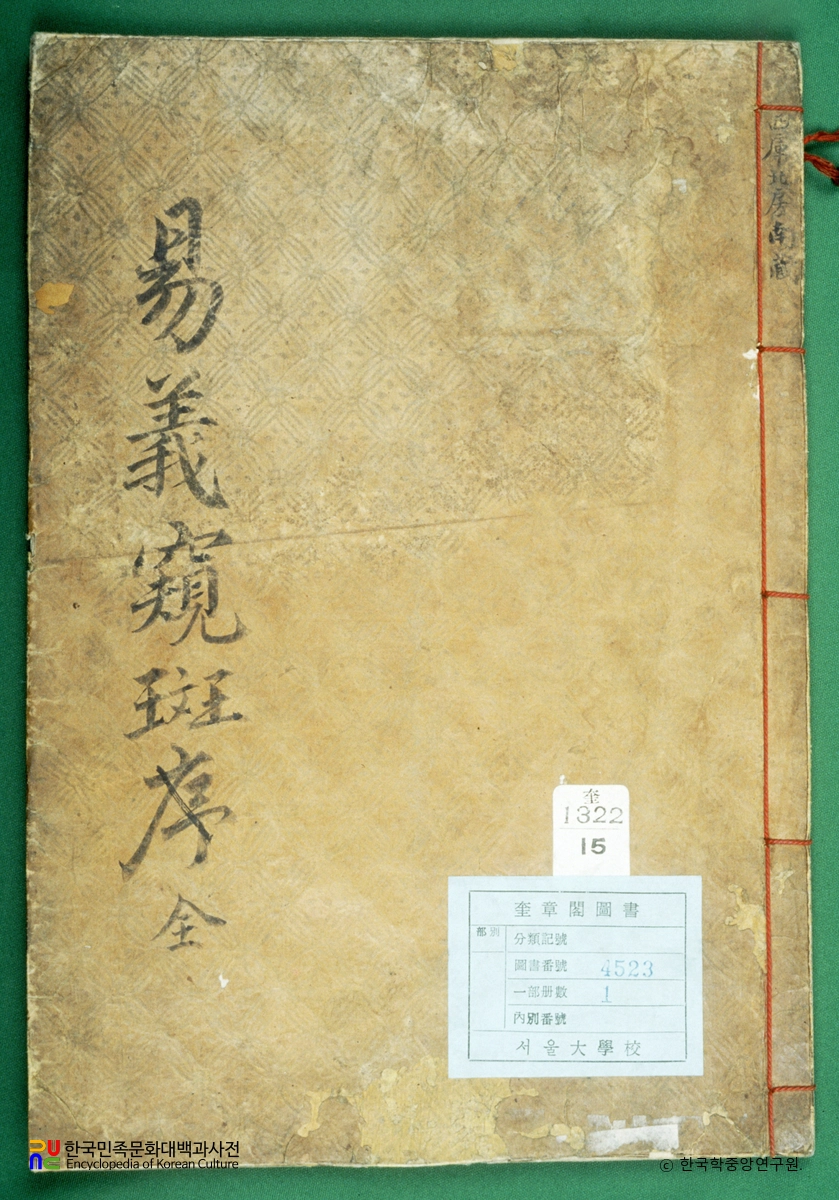 易義窺斑序 全
西庫北房南藏
奎
1322
15
奎章閣圖書
部別
分類記號
圖書番號 4523
一部册數 1
內別番號
서울大學校
한국민족문화대백과사전
Encyclopedia of Korean Culture
© 한국학중앙연구원.